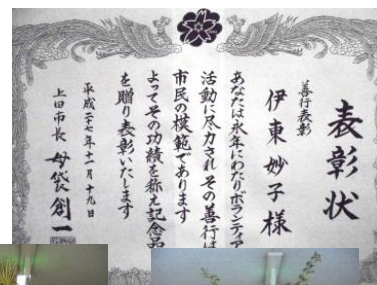 表彰状
善行表彰
伊東妙子様
あなたは永年にわたりボランティア
活動に尽力されその善行は
市民の模範であります
よってその功績を称え記念品
を贈り表彰いたします
平成二十七年十一月十九日
上田市長 母袋創一